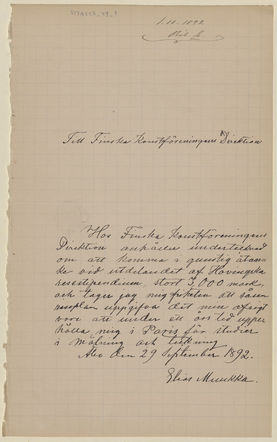 1.10.1892
Till Finska Konstföreningens Direktion
Hos Finska Konstföreningens
Direktion anhåller undertecknad
om att komma i gynnsig åtan-
ke vid utdelandet af Hovingska
resestipendium, stort 3,000 mark,
och tager jag mig friheten att såsom
resplan uppgifva att min afsigt
vore att under ett års tid uppe-
hålla mig i Paris för studier
i målning och teckning.
Åbo den 29 September 1892.
Elias Muukka.